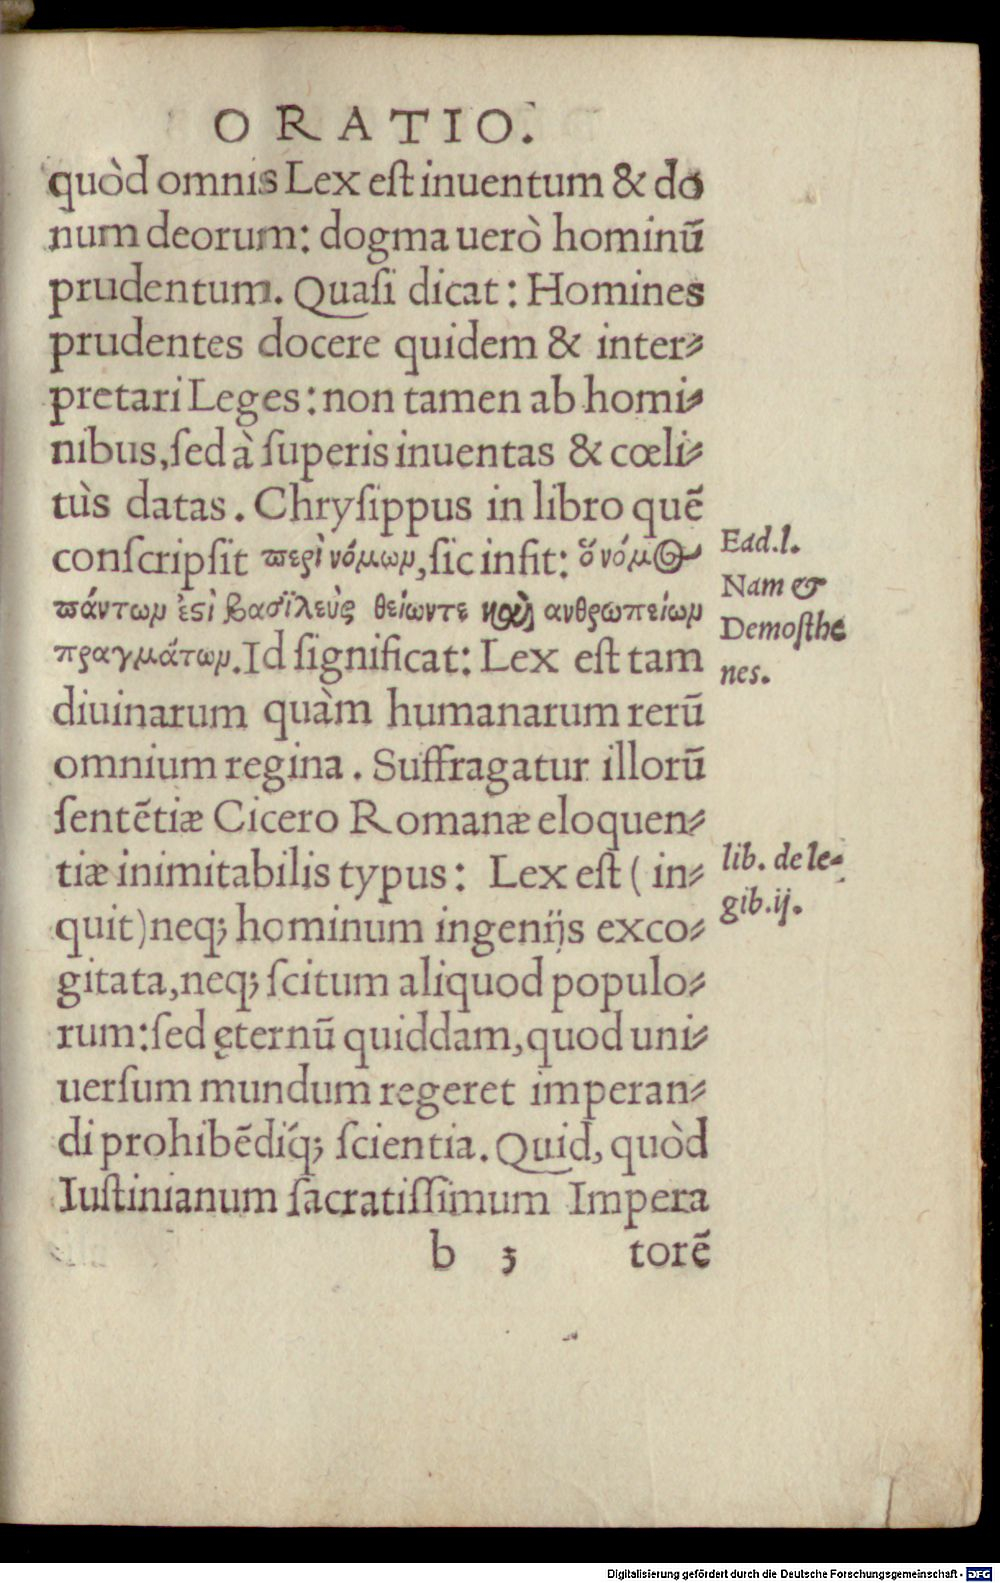 ORATIO.
quòd omnis Lex est inuentum & do
num deorum: dogma uerò hominū
prudentum. Quasi dicat: Homines
prudentes docere quidem & inter⸗
pretari Leges: non tamen ab homi⸗
nibus, sed à superis inuentas & cœli⸗
tùs datas. Chrysippus in libro quē
conscripsit ϖερὶ νόμων, sic infit: ὅ νόμος
ϖάντων ἐϛὶ βασϊλεὺς θείωντε καὶ ανθρωπείων
πραγμάτων. Id significat: Lex est tam
diuinarum quàm humanarum rerū
omnium regina. Suffragatur illorū
sentētiæ Cicero Romanæ eloquen⸗
tiæ inimitabilis typus: Lex est (in⸗
quit) neq; hominum ingenijs exco⸗
gitata, neq; scitum aliquod populo⸗
rum: sed ęternū quiddam, quod uni⸗
uersum mundum regeret imperan⸗
di prohibēdiq́; scientia. Quid, quòd
Iustinianum sacratissimum Impera
b 3 torē
Ead. l.
Nam &
Demosthe
nes.
lib. de le⸗
gib. ij.
Digitalisierung gefördert durch die Deutsche Forschungsgemeinschaft - DFG